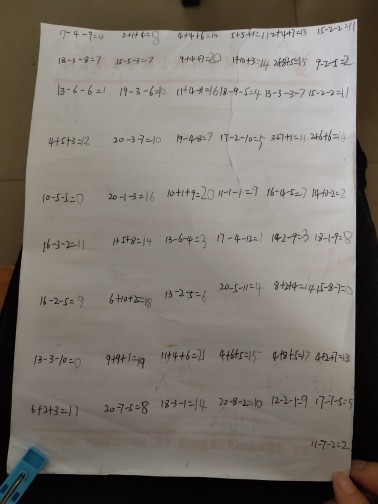 17-4-9=4 3+1+4=8 4+4+6=14 5+5+1=11 2+4+7=13 15-2-2=11
18-3-8=7 15-5-3=7 9+4+7=20 1+10+3=14 2+8+5=15 9-2-5=2
13-6-6=1 19-3-6=10 18-9-5=4 13-3-3=7 15-2-2=11
4+5+3=12 20-3-7=10 19-4-8=7 17-2-10=5 3+7+1=11 2+6+6=14
10-5-5=0 20-1-3=16 10+1+9=20 11-1-1=9 16-4-5=7
16-3-2=11 1+5+8=14 13-6-4=3 17-4-12=1 14-2-9=3 18-1-9=8
16-2-5=9 6+10+2=18 13-2-5=6 20-5-11=4 8+2+4=14 15-8-7=0
13-3-10=0 9+9+1=19 11+4+6=21 4+6+5=15 4+8+5=17 4+2+7=13
6+2+3=11 20-7-5=8 18-3-1=14 20-8-2=10 12-2-1=9 17-7-5=5
11-7-2=2